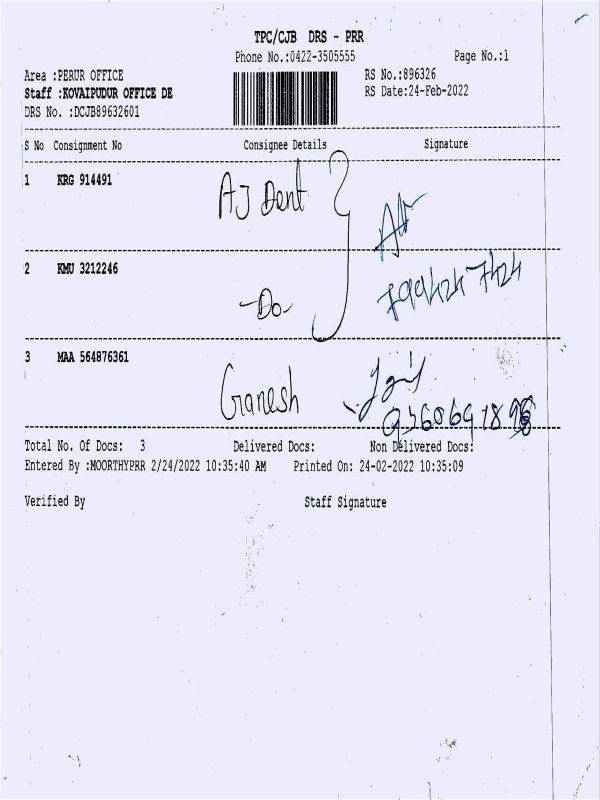 TPC/CJB DRS - PRR
Phone No.:0422-3505555 Page No.:1
Area :PERUR OFFICE RS No.:896326
Staff :KOVAIPUDUR OFFICE DE RS Date:24-Feb-2022
DRS No. :DCJB89632601
S No Consignment No Consignee Details Signature
1 KRG 914491 AJ Dent
2 KMU 3212246 -Do- 799424 7424
3 MAA 564876361 Ganesh
Total No. Of Docs: 3 Delivered Docs: Non Delivered Docs:
Entered By :MOORTHYPRR 2/24/2022 10:35:40 AM Printed On: 24-02-2022 10:35:09
Verified By Staff Signature